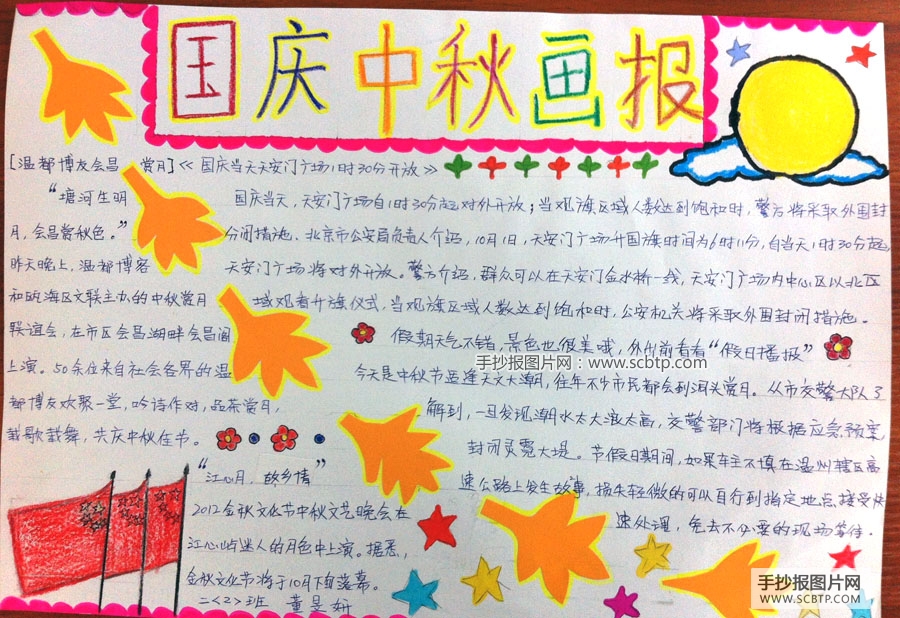 国庆中秋画报
[温都博友会昌 赏月]
“塘河生明
月,会昌赏秋色。”
昨天晚上,温都博客
和瓯海区文联主办的中秋赏月
联谊会,在市区会昌湖畔会昌阁
上演。50余位来自社会各界的温
都博友欢聚一堂,吟诗作对,品茶赏月,
载歌载舞,共庆中秋佳节。
《国庆当天天安门广场1时30分开放》
国庆当天,天安门广场自1时30分起对外开放;当观旗区域人数达到饱和时,警方将采取外围封
闭措施。北京市公安局负责人介绍,10月1日,天安门广场升国旗时间为6时11分,自当天1时30分起
天安门广场将对外开放。警方介绍,群众可以在天安门金水桥一线,天安门广场内中心区以北区
域观看升旗仪式,当观旗区域人数达到饱和时,公安机关将采取外围封闭措施。
假期天气不错,景色也很美哦,外出前看看“假日播报”
手抄报图片网:www.scbtp.com
今天是中秋节并逢天文大潮,往年不少市民都会到洞头赏月。从市交警大队了
解到,一旦发现潮水太大浪太高,交警部门将根据应急预案
封闭灵霓大堤。节假日期间,如果车主不慎在温州辖区高
速公路上发生故事,损失轻微的可以自行到指定地点接受快
速处理,免去不必要的现场等待.
“江心月,故乡情”
2012金秋文化节中秋文艺晚会在
江心屿迷人的月色中上演。据悉,
金秋文化节将于10月下旬落幕。
二<2>班 董昱妍
手抄报图片网
www.scbtp.com